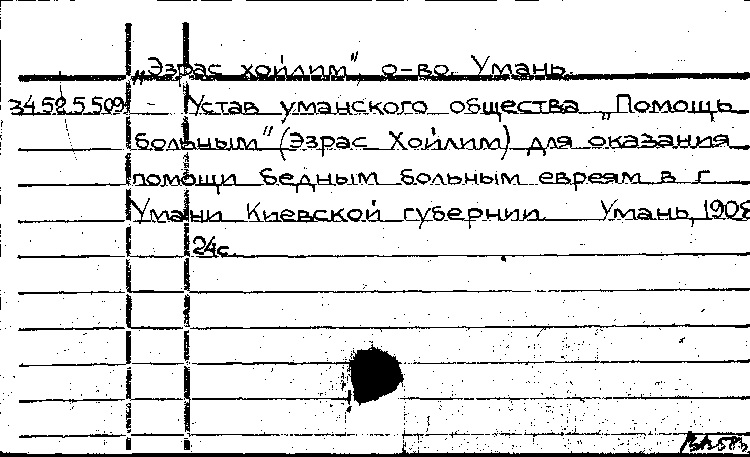 „Эзрас хойлим", о-во. Умань.
34.58.5.509 - Устав уманского общества „Помощь
больным" (Эзрас Хойлим) для оказания
помощи бедным больным евреям в г.
Умани Киевской губернии. Умань, 1908
24с.